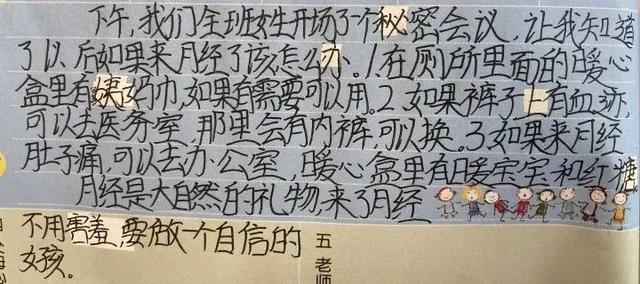 下午,我们全班女生开场了个秘密会议,让我知道
了以后如果来月经了该怎么办。1在厕所里面的暖心
盒里有姨妈巾,如果有需要可以用。2如果裤子上有血迹,
可以去医务室,那里会有内裤,可以换。3如果来月经
肚子痛,可以去办公室,暖心盒里有暖宝宝和红糖
月经是大自然的礼物,来了月经
不用害羞,要做一个自信的
女孩。
五
老师